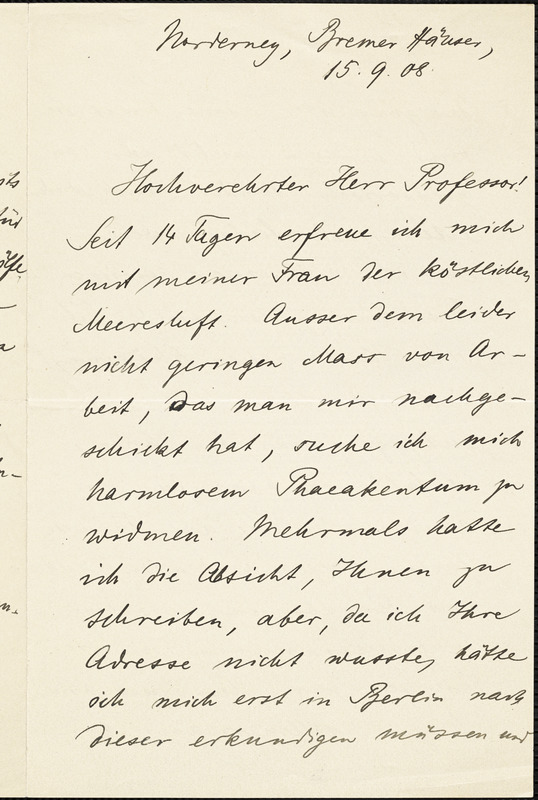 Norderney, Bremer Häuser,
15.9.08.
Hochverehrter Herr Professor!
Seit 14 Tagen erfreue ich mich
mit meiner Frau der köstlichen
Meeresluft. Ausser dem leider
nicht geringen Mass von Ar-
beit, das man mir nachge-
schickt hat, suche ich mich
harmlosem Phaeakentum zu
widmen. Mehrmals hatte
ich die Absicht, Ihnen zu
schreiben, aber, da ich Ihre
Adresse nicht wusste, hätte
ich mich erst in Berlin nach
dieser erkundigen müssen und